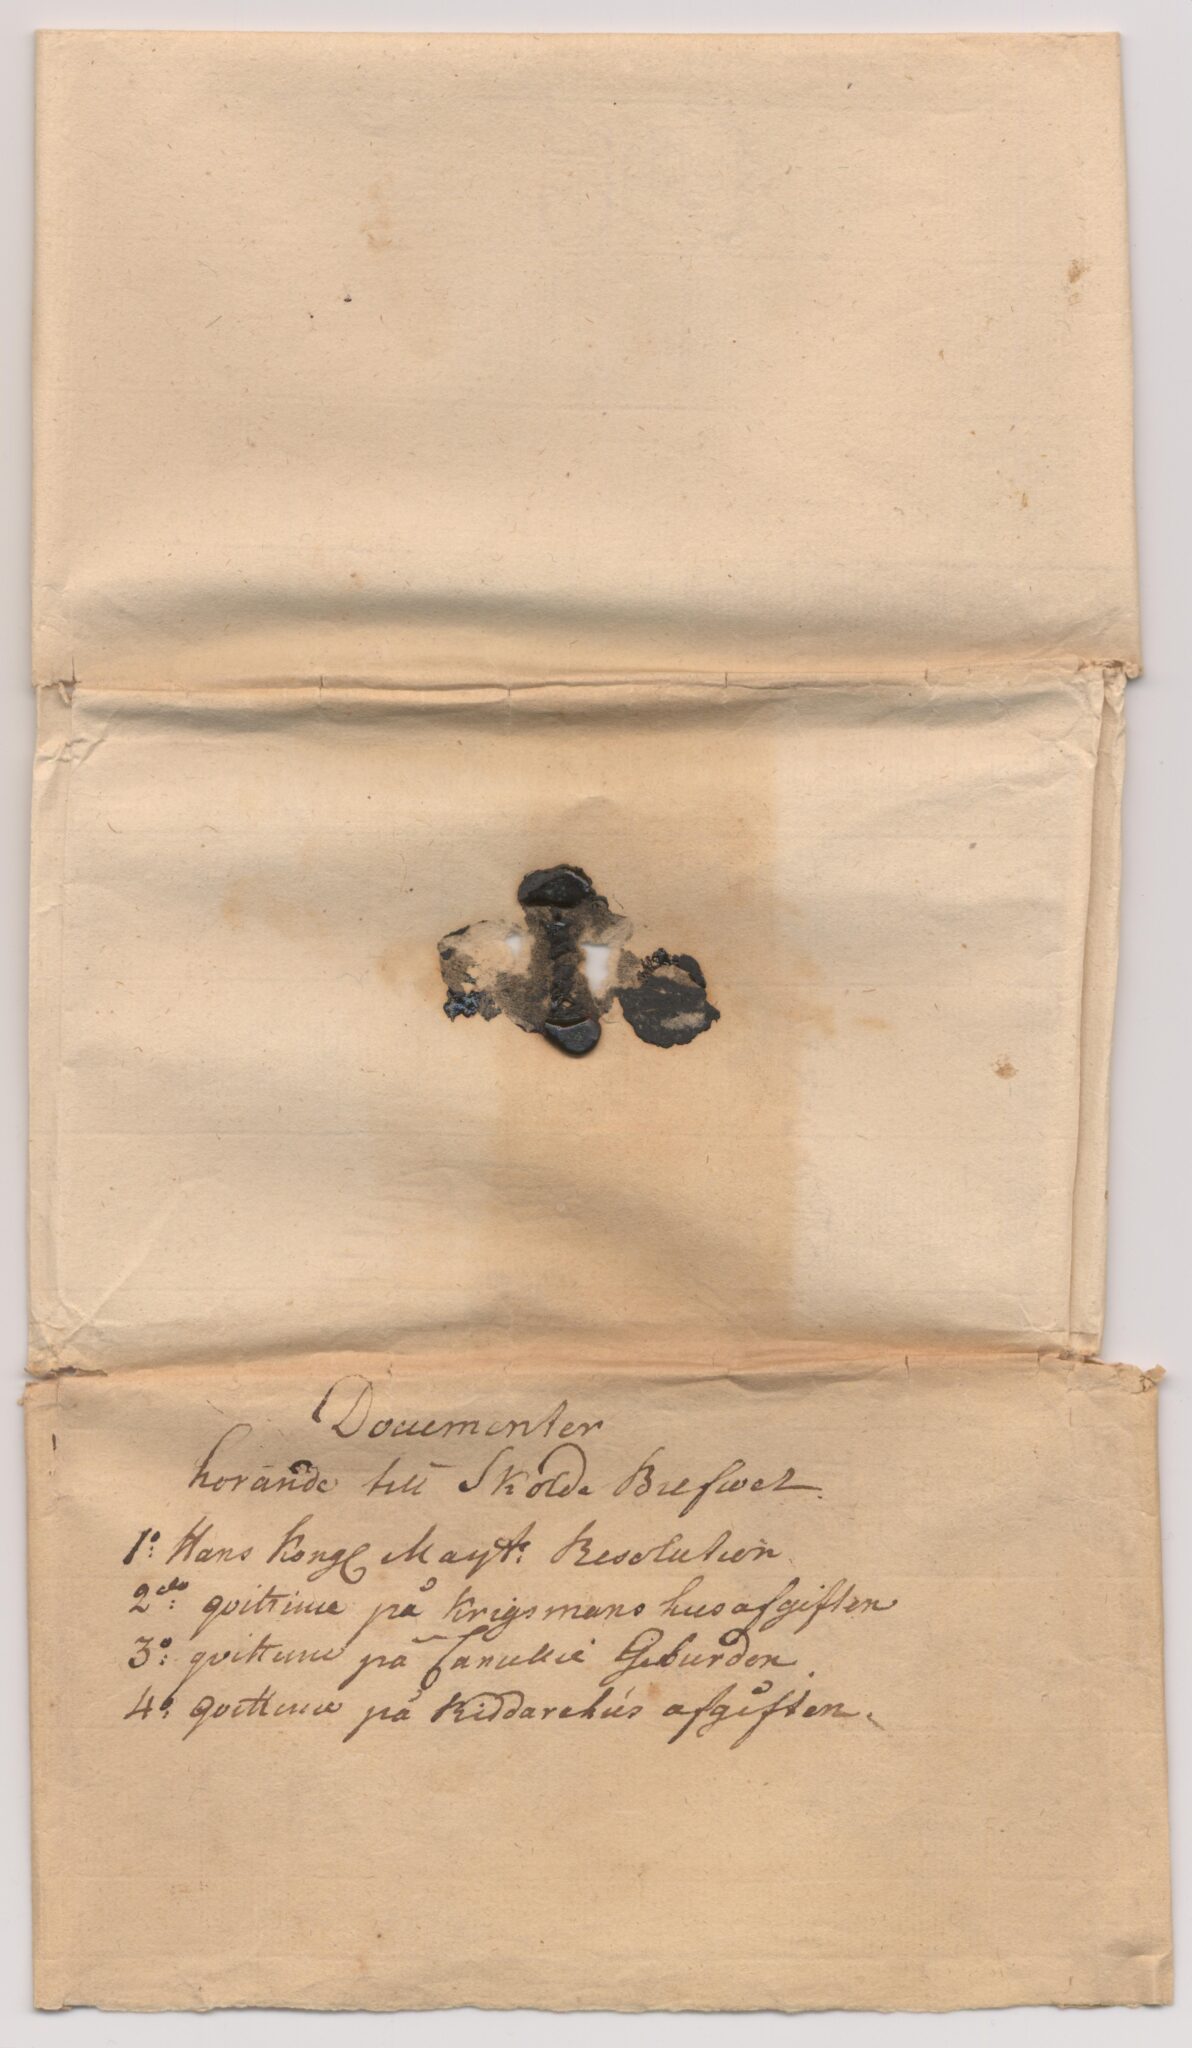 Documenter
hörande till Skölde Brefwet.
1:º Hans Kongl May:ts Resolution
2:do qvittence på Krigsmans husafgiften
3:º qvittence på Cancellie Geburden
4:º qvittence på Riddarehus afgiften.